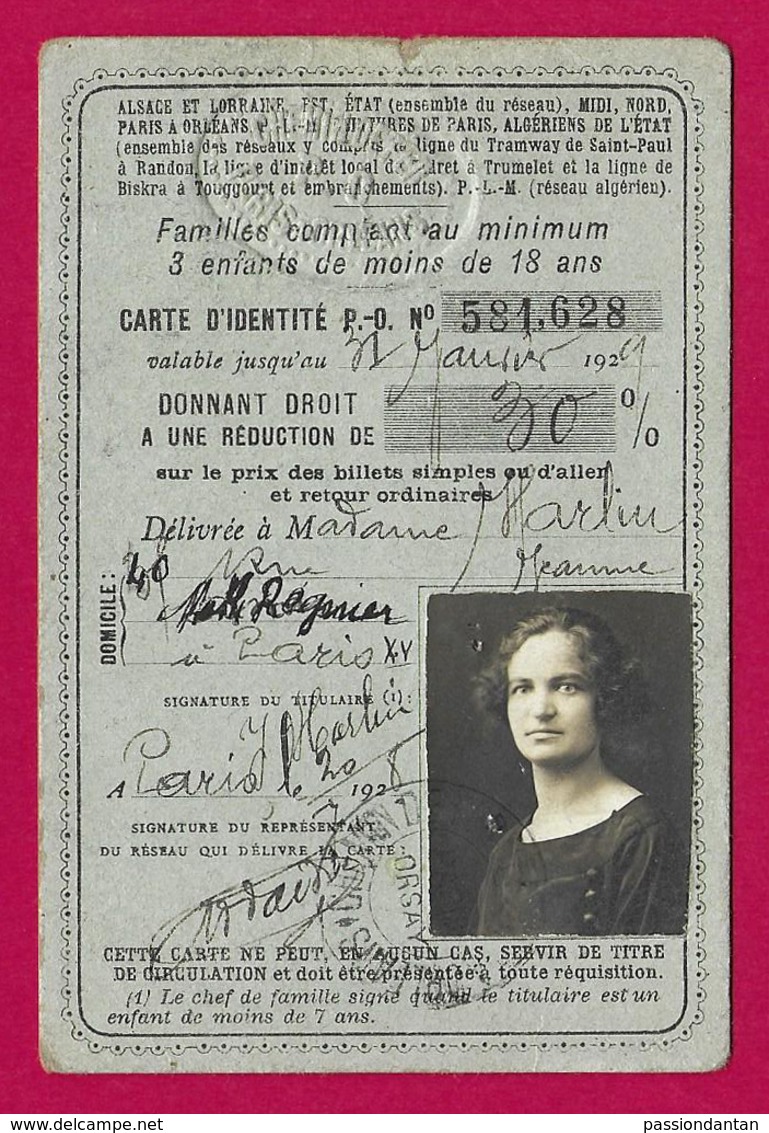 ALSACE ET LORRAINE, EST, ÉTAT (ensemble du réseau), MIDI, NORD,
PARIS À ORLÉANS, P.-L.-M., CEINTURES DE PARIS, ALGÉRIENS DE L'ÉTAT
(ensemble des réseaux y compris la ligne du Tramway de Saint-Paul
à Randon, la ligne d'intérêt local de Oudret à Trumelet et la ligne de
Biskra à Touggourt et embranchements). P.-L.-M. (réseau algérien).
Familles comptant au minimum
3 enfants de moins de 18 ans
CARTE D'IDENTITÉ P.-O. Nº 581.628
valable jusqu'au 31 Janvier 1929
DONNANT DROIT
A UNE RÉDUCTION DE 30 %
sur le prix des billets simples ou d'aller
et retour ordinaires
Délivrée à Madame Harlin
Jeanne
DOMICILE : 40 Rue
Regnier
à Paris XV
SIGNATURE DU TITULAIRE (1) :
J Harlin
A Paris, le 20 7 1928
SIGNATURE DU REPRÉSENTANT
DU RÉSEAU QUI DÉLIVRE LA CARTE :
ORSAY
CETTE CARTE NE PEUT, EN AUCUN CAS, SERVIR DE TITRE
DE CIRCULATION et doit être présentée à toute réquisition.
(1) Le chef de famille signe quand le titulaire est un
enfant de moins de 7 ans.
delcampe.net
passiondantan